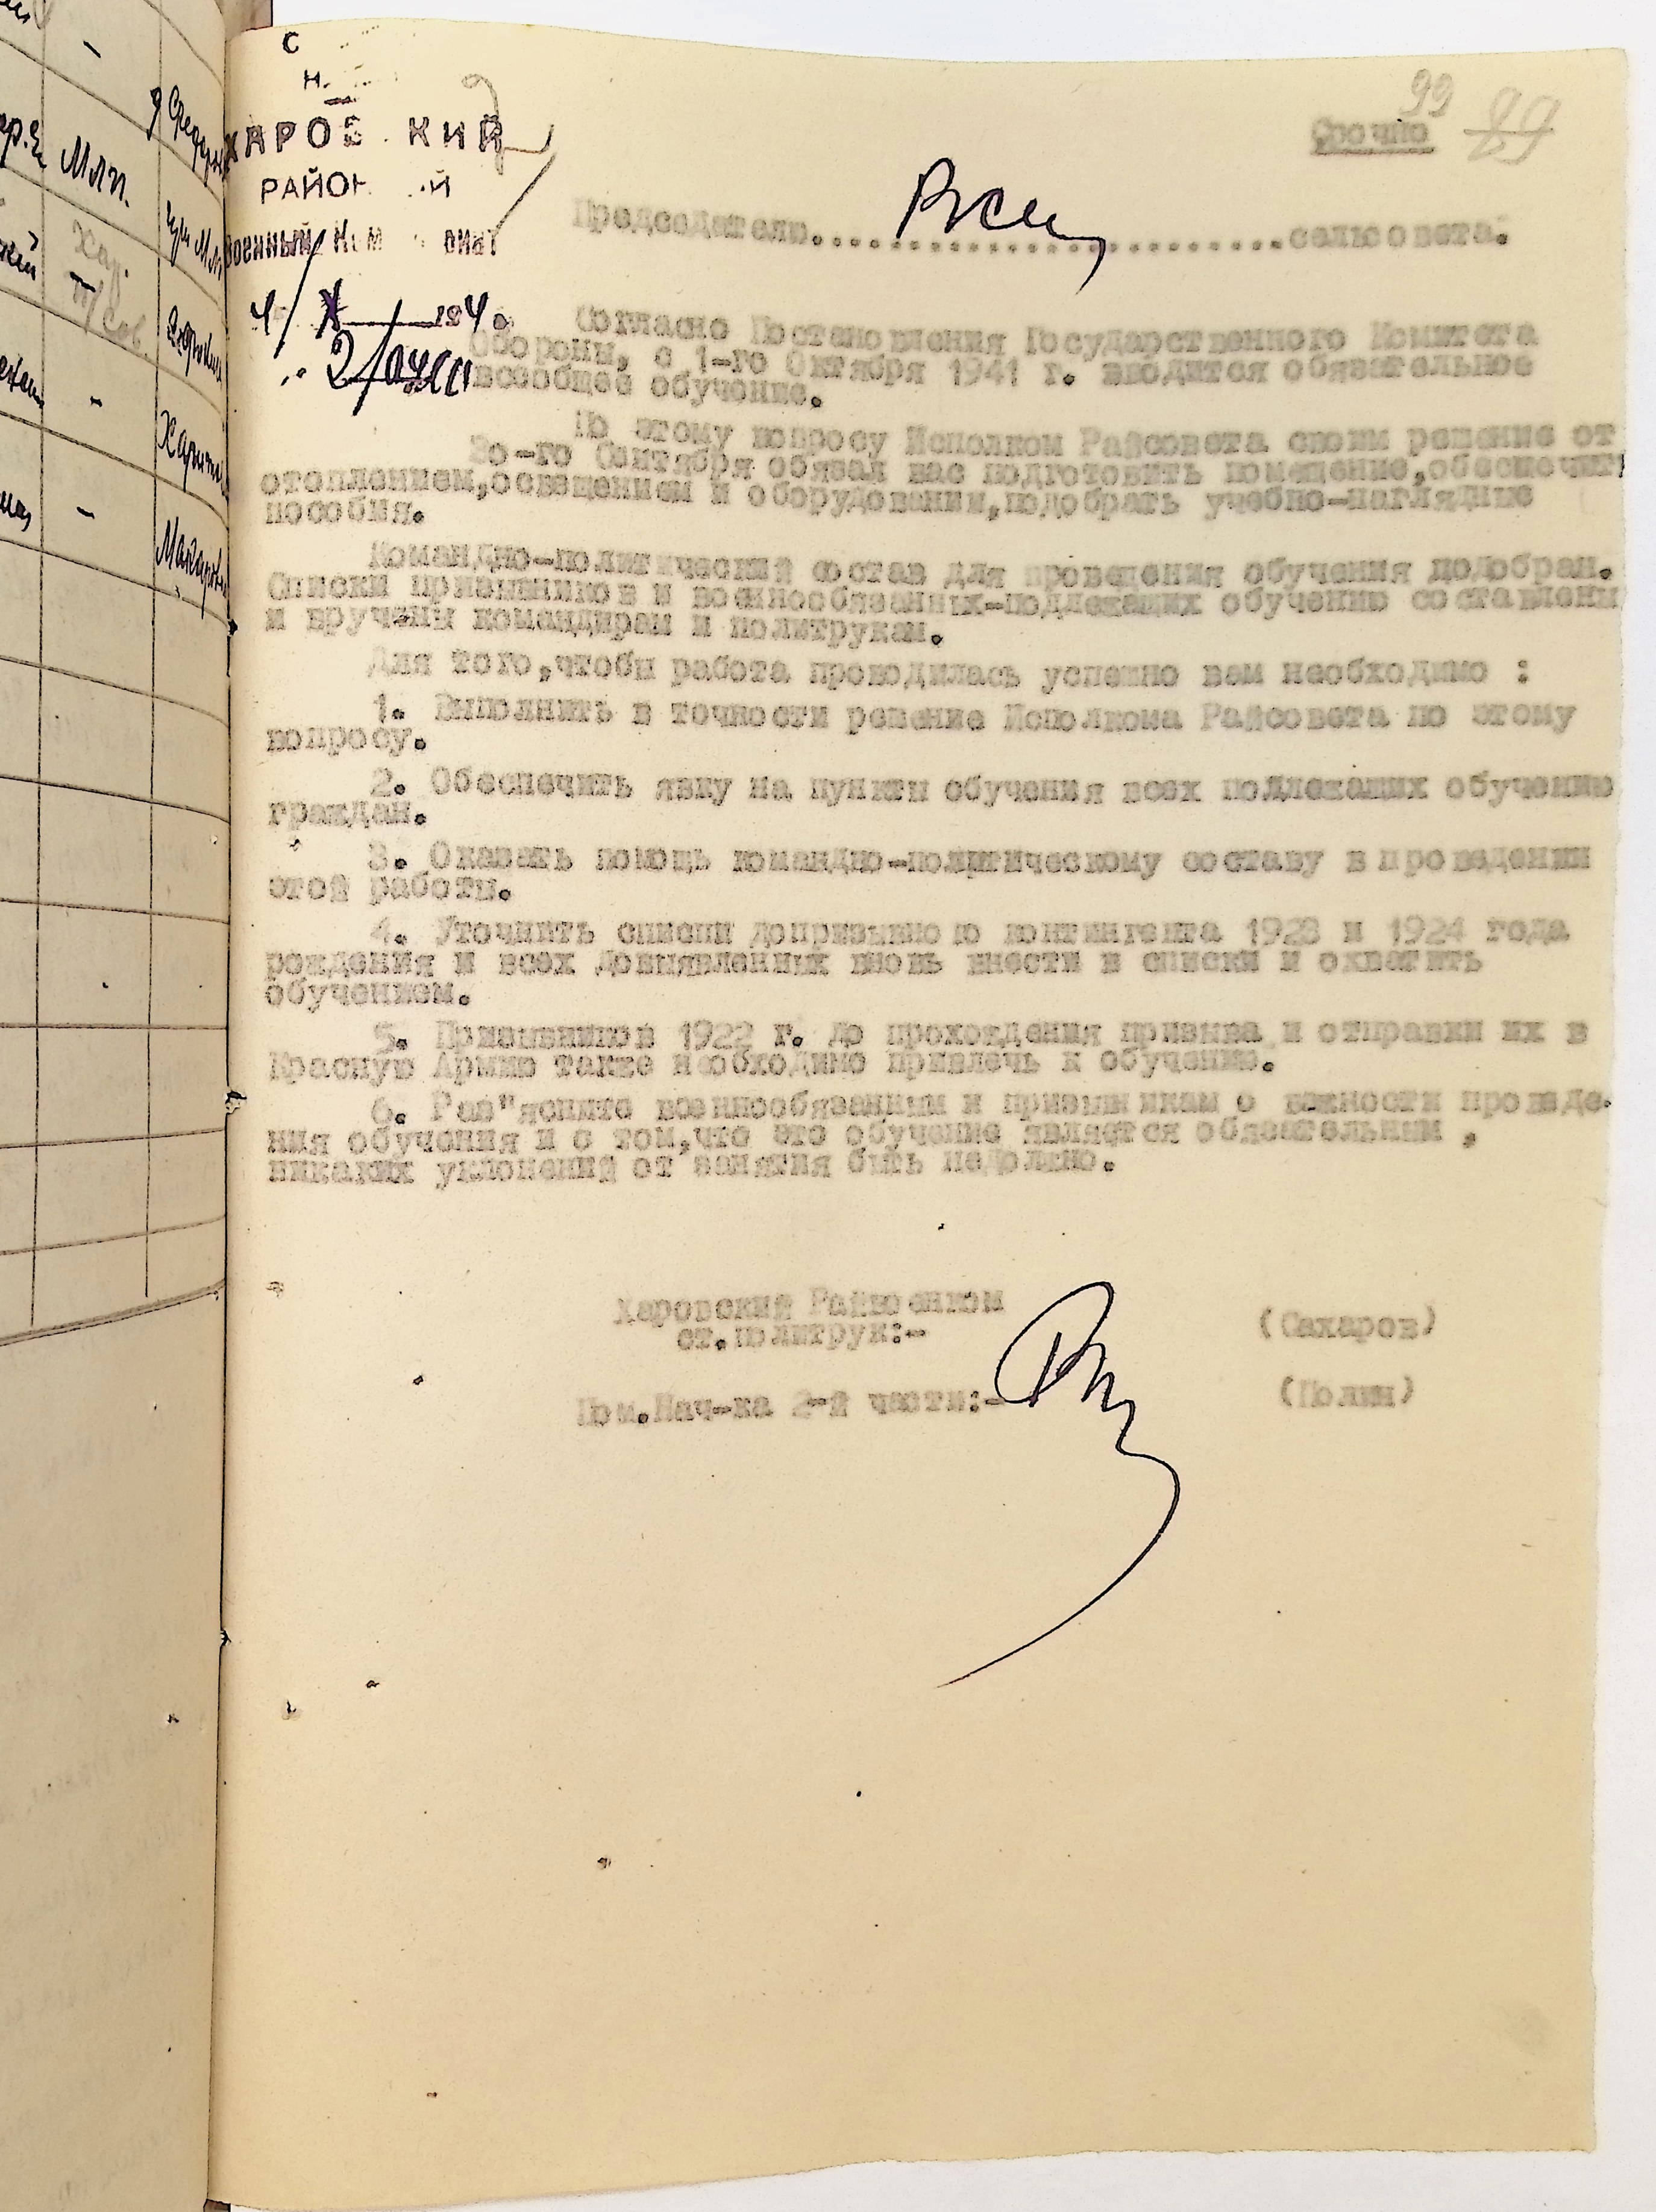 99
Срочно 89
С
Н.
ХАРОВ КИЙ
РАЙОН Й
ВОЕННЫЙ
Председателю..............................сельсовета.
Согласно Постановления Государственного Комитета
Обороны, с 1-го Октября 1941 г. вводится обязательное
всеобщее обучение.
По этому вопросу Исполком Райсовета своим решение от
3о-го Сентября обязал вас подготовить помещение,обеспечить
отоплением,освещением и оборудовании,подобрать учебно-наглядные
пособия.
Командно-политический состав для проведения обучения подобран.
Списки призывников и военнообязанных-подлежащих обучению составлены
и вручены командирам и политрукам.
Для того,чтобы работа проводилась успешно вам необходимо :
1. Выполнить в точности решение Исполкома Райсовета по этому
вопросу.
2. Обеспечить явку на пункты обучения всех подлежащих обучению
граждан.
3. Оказать помощь командно-политическому составу в проведении
этой работы.
4. Уточнить списки допризывного контингента 1923 и 1924 года
рождения и всех довыявленных вновь внести в списки и охватить
обучением.
5. Призывников 1922 г. до прохождения призыва и отправки их в
Красную Армию также необходимо привлечь к обучению.
6. Раз"яснить военнообязанным и призывникам о важности проведе-
ния обучения и о том,что это обучение является обязательным ,
никаких уклонений от занятия быть недолжно.
Харовский Райвоенком
ст.политрук:- (Сахаров)
Пом.Нач-ка 2-й части:- (Полин)